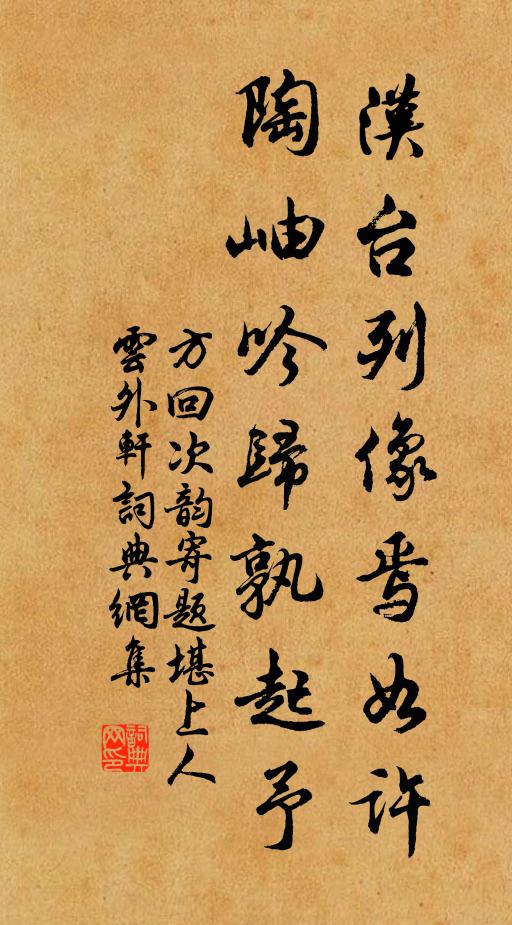 漢台列像焉如許
陶岫吟歸孰起予
方回次韵寄題堪上人
雲外軒詞典網集
詞典網印